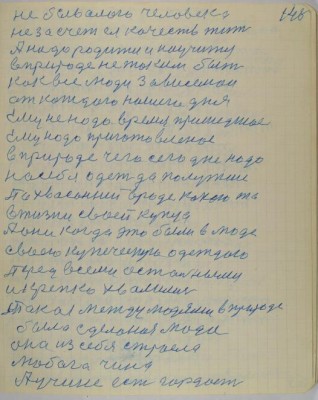 не бывалого человека 148
не за счет ся качеств тит
А надо родити и научити
в природе не таким быт
как все люди Зависимои
от каждого нашего дня
Ему не надо время пришедшое
Ему надо приготовленое
в природе чего сегодне надо
на себя одет да получше
Похвасонит вроде какою та
в жизни своей купца
А они когда это были в моде
свою купеческую одеждою
перед всеми остальными
и крепко хвалилис
Такая между людями в природе
была сделаная мода
она из себя строела
любога чина
Лучше ест гордост